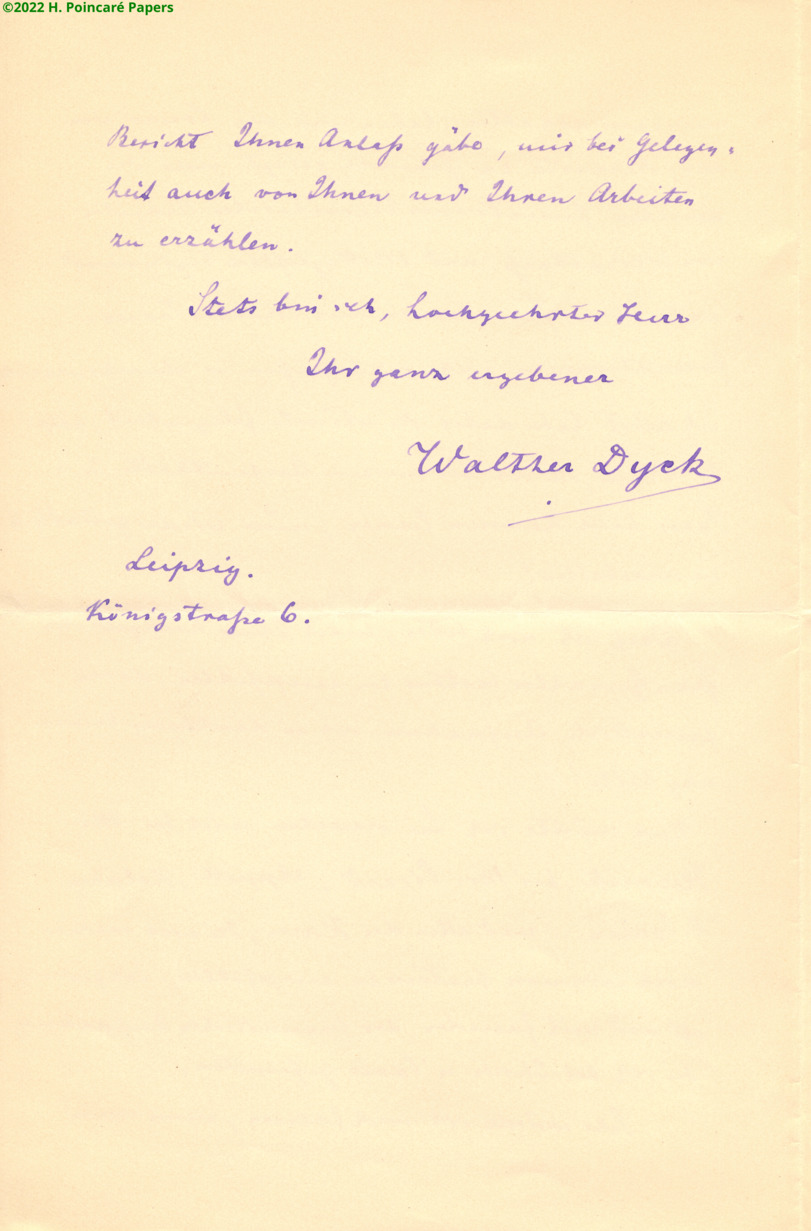 ©2022 H. Poincaré Papers
Bericht Ihnen Anlaß gäbe, mir bei Gelegen-
heit auch von Ihnen und Ihren Arbeiten
zu erzählen.
Stets bin ich, hochgeehrter Herr
Ihr ganz ergebener
Walther Dyck
Leipzig.
Königstraße 6.